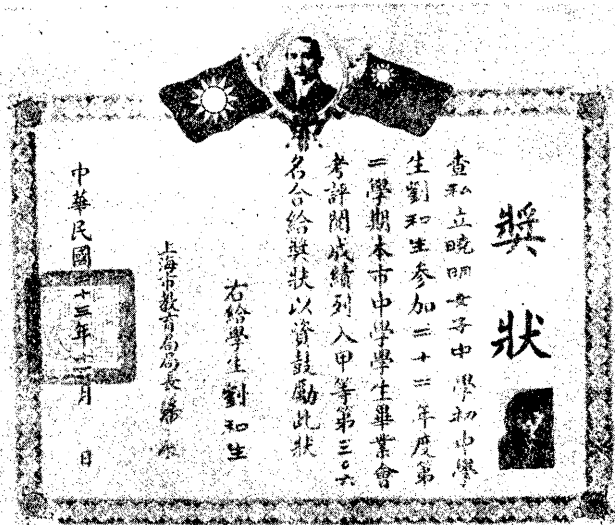 獎狀
查私立曉明女子中學初中學
生劉和生參加二十二年度第
二學期本市中學學生畢業會
考評閱成績列入甲等第三〇六
名合給獎狀以資鼓勵此狀
右給學生劉和生
上海市教育局局長潘
中華民國二十三年十二月 日